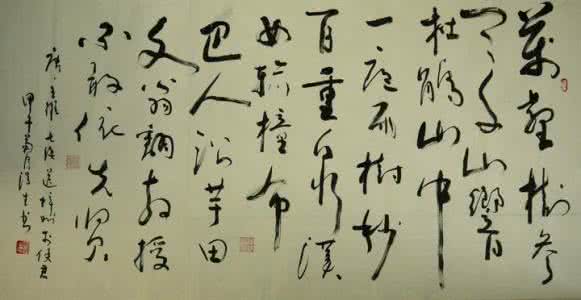 萬壑樹參
天千山響
杜鵑山中
一夜雨樹杪
百重泉漢
女輸橦布
巴人訟芋田
文翁翻教授
不敢依先賢
唐王維七律送梓州李使君
甲午菊月書